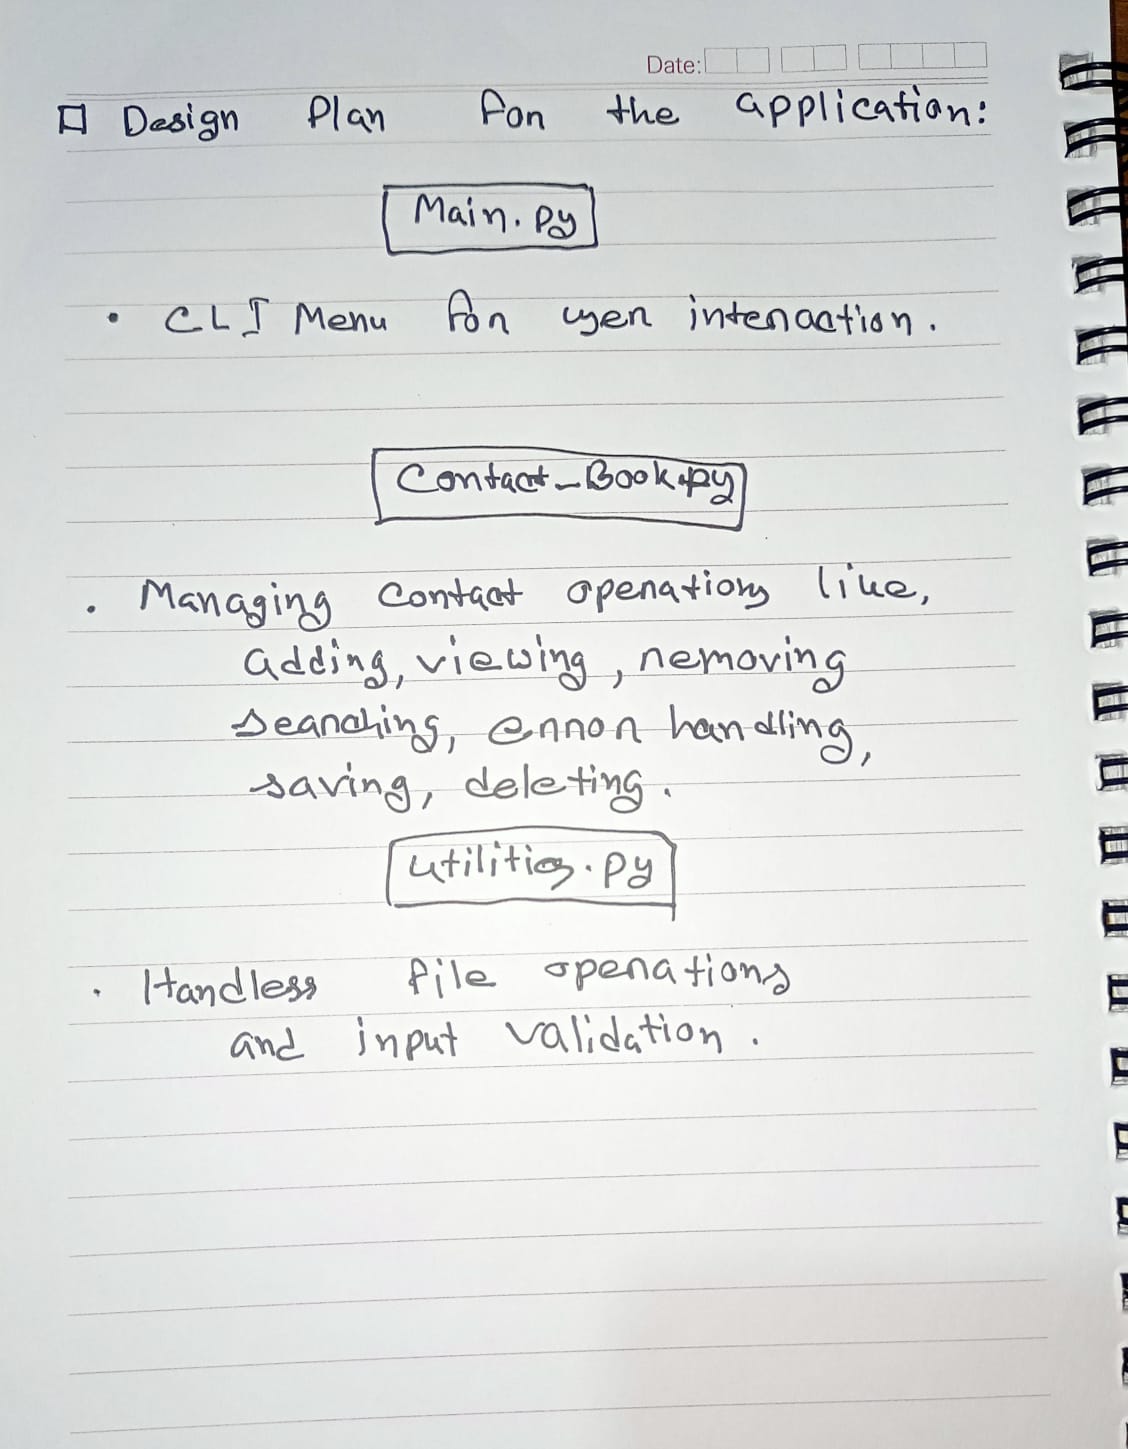 Date:
Design Plan for the application:
Main.py
• CLI Menu for user interaction.
Contact_Book.py
• Managing Contact operations like,
adding, viewing, removing
searching, error handling,
saving, deleting.
utilities.py
• Handless file operations
and input validation.